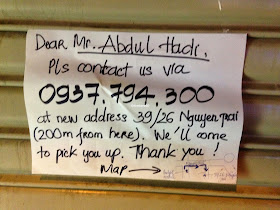 Dear Mr. Abdul Hadi,
Pls contact us via
0937.794.300
at new address 39/26 Nguyen Trai
(200m from here). We'll come
to pick you up. Thank you!
Map